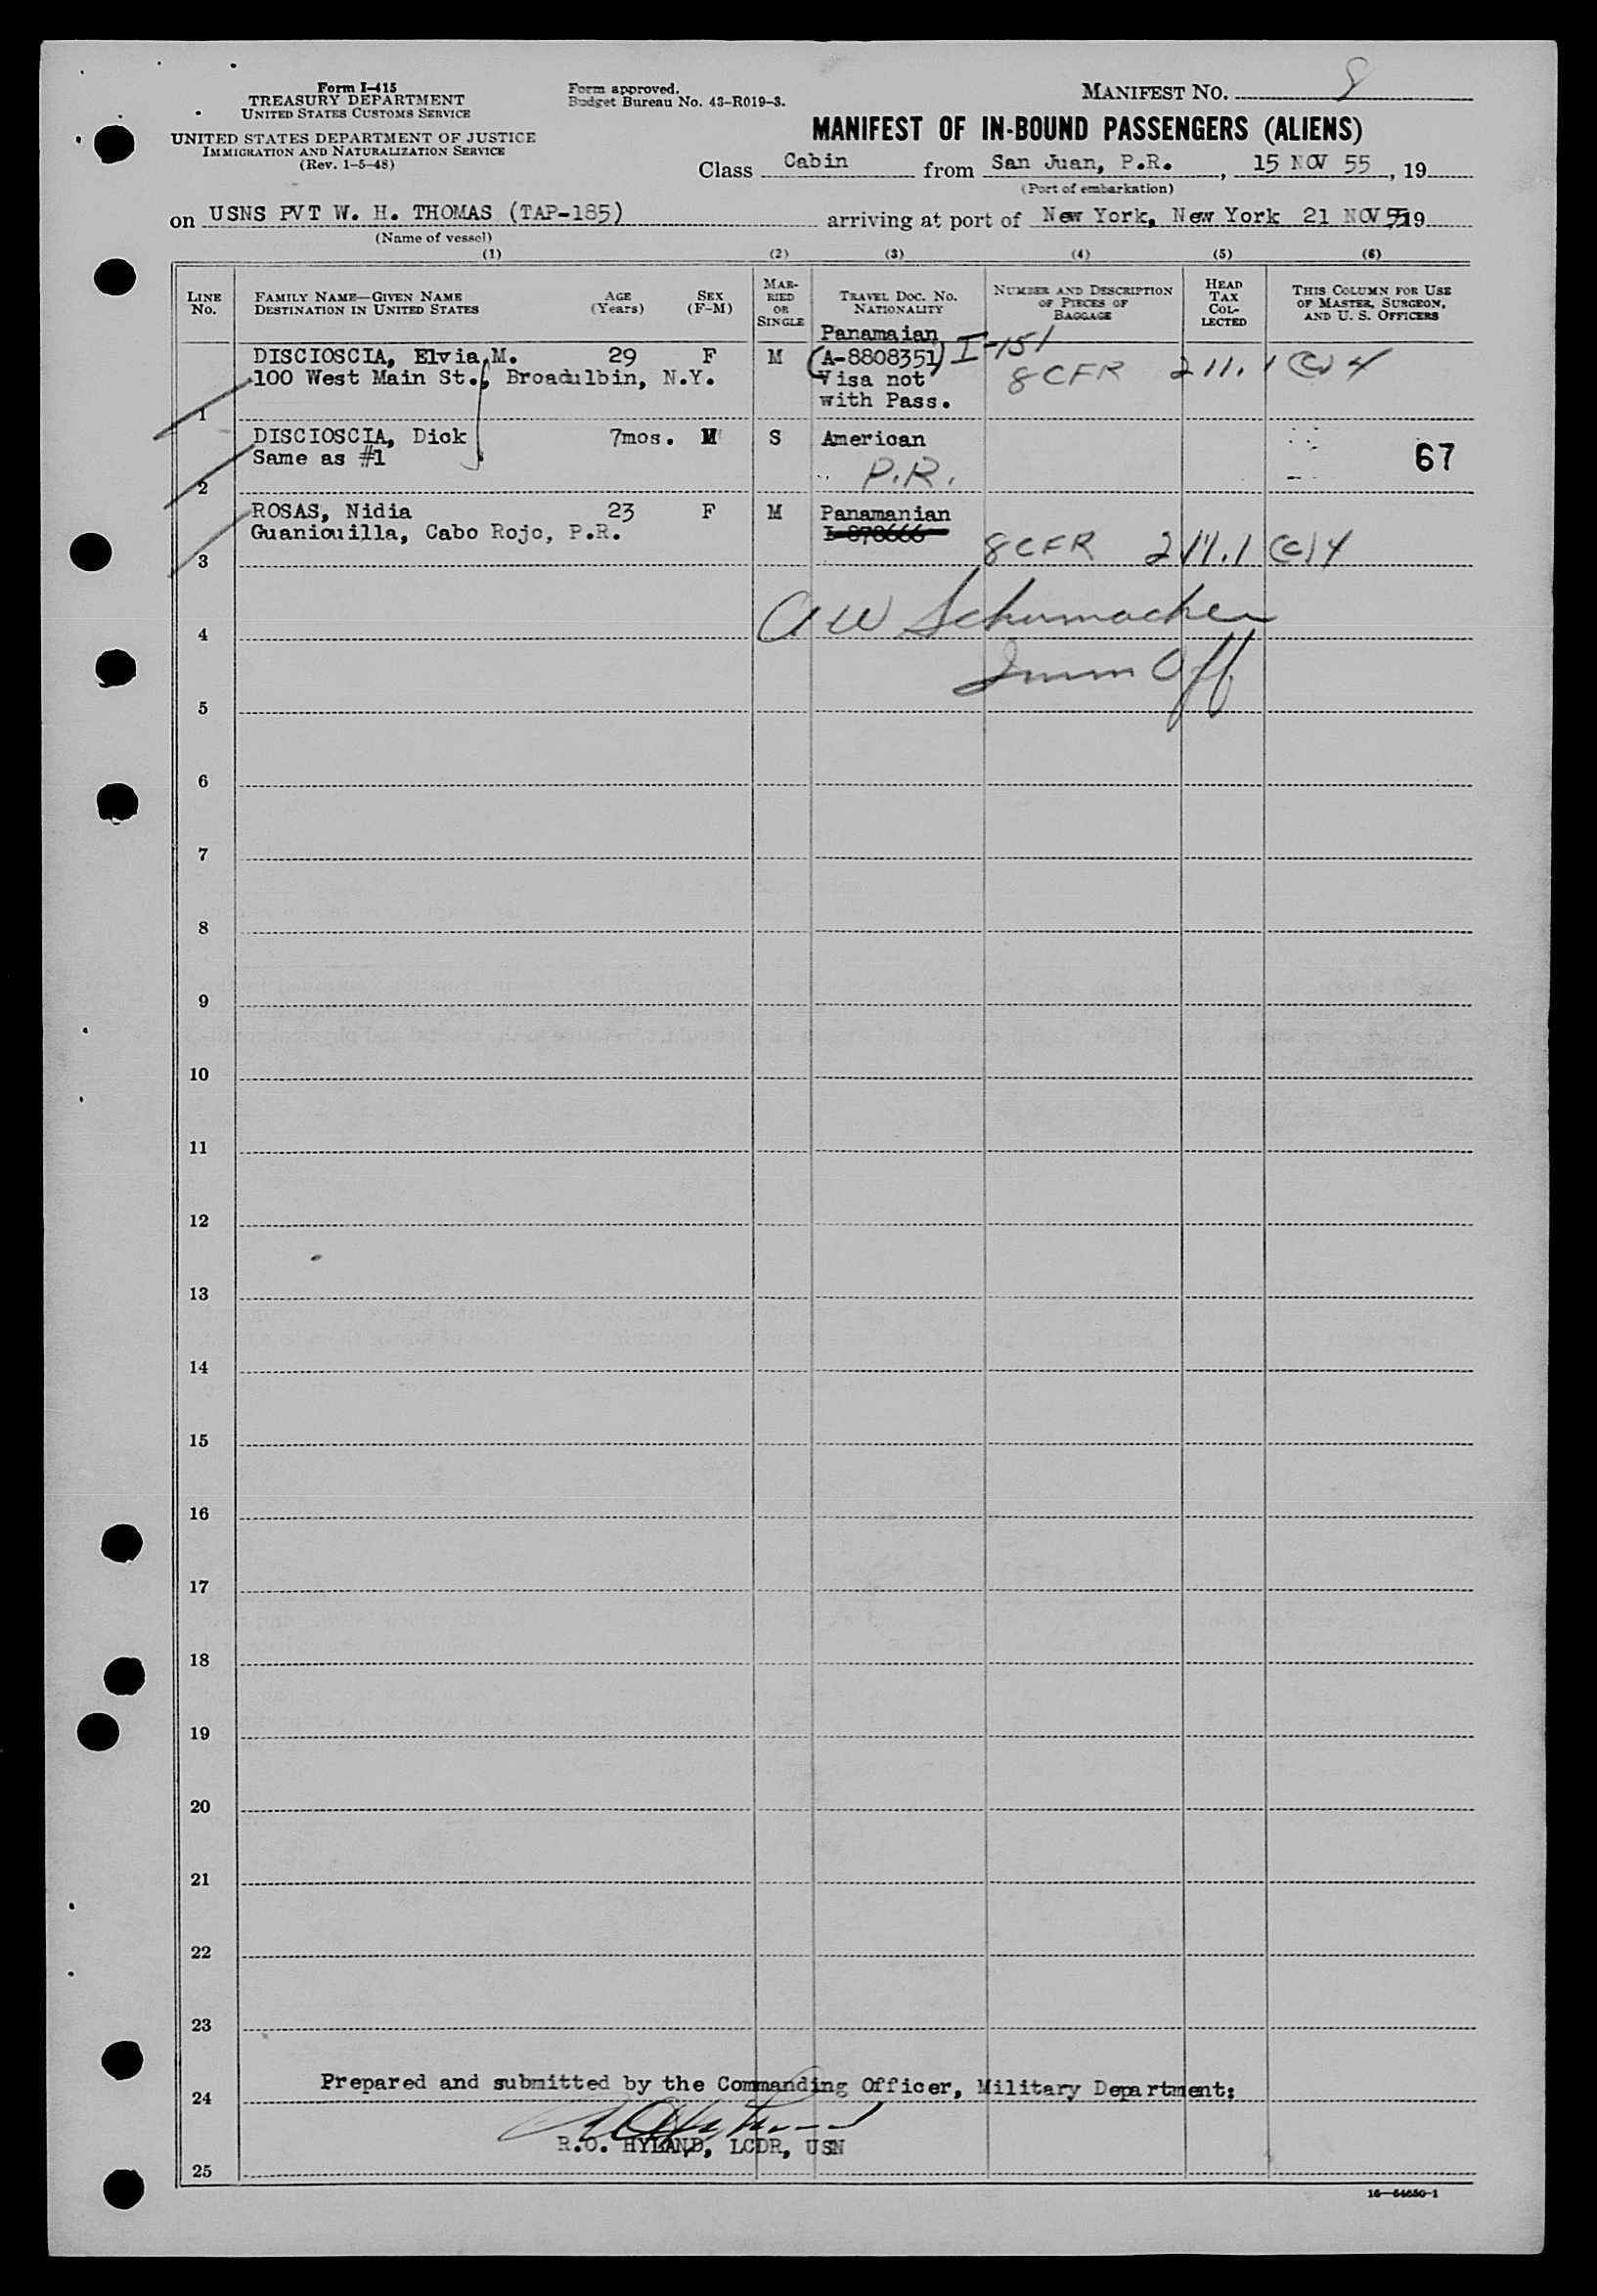 Form I-415
TREASURY DEPARTMENT
UNITED STATES CUSTOMS SERVICE
UNITED STATES DEPARTMENT OF JUSTICE
IMMIGRATION AND NATURALIZATION SERVICE
(Rev. 1-5-48)
Form approved.
Budget Bureau No. 43-R019-3.
MANIFEST NO. 8
MANIFEST OF IN-BOUND PASSENGERS (ALIENS)
Class Cabin from San Juan, P.R., 15 NOV 55, 19
(Port of embarkation)
on USNS PVT W. H. THOMAS (TAP-185) arriving at port of New York, New York 21 NOV 55 19
(Name of vessel)
(1) (2) (3) (4) (5) (6)
LINE NO.
FAMILY NAME—GIVEN NAME
DESTINATION IN UNITED STATES
AGE (Years)
SEX (F-M)
MARRIED OR SINGLE
TRAVEL DOC. NO.
NATIONALITY
NUMBER AND DESCRIPTION OF PIECES OF BAGGAGE
HEAD TAX COLLECTED
THIS COLUMN FOR USE OF MASTER, SURGEON, AND U. S. OFFICERS
Panamaian
DISCIOSCIA, Elvia M. 29 F M (A-8808351) I-151
100 West Main St., Broadulbin, N.Y. Visa not 8CFR 211.1(c)4
1 with Pass.
DISCIOSCIA, Dick 7mos. M S American
Same as #1 67
2 P.R.
ROSAS, Nidia 23 F M Panamanian
Guaniouilla, Cabo Rojo, P.R.
3 8CFR 211.1(c)4
4 A W Schumacher
Imm Off
5
6
7
8
9
10
11
12
13
14
15
16
17
18
19
20
21
22
23
Prepared and submitted by the Commanding Officer, Military Department:
24
R.O. HYLAND, LCDR, USN
25
16—54650-1